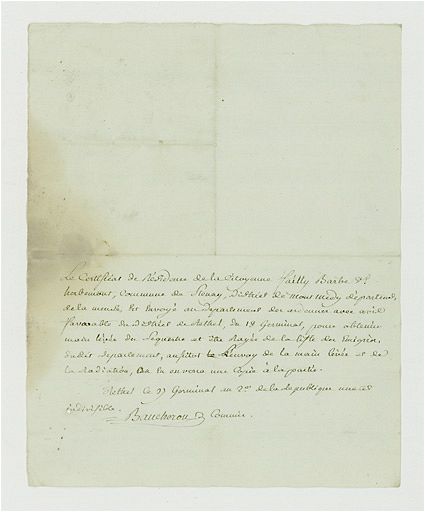 Le Certificat de Résidence de la Citoyenne failly Barbe
herbemont, Commune de Stenay, District de Montmédy département
de la meuse, est Envoyé au département des ardennes avec avis
favorable du District de Rethel, du 18 Germinal, pour obtenir
main levée du Sequestre et être Rayée de la liste des Emigrés,
dudit département, aussitot le Renvoy de la main levée et de
la Radiation, on lui en verra une Copie à la partie.
Rethel ce Germinal an 2e de la Republique une et
indivisible.
Commis.